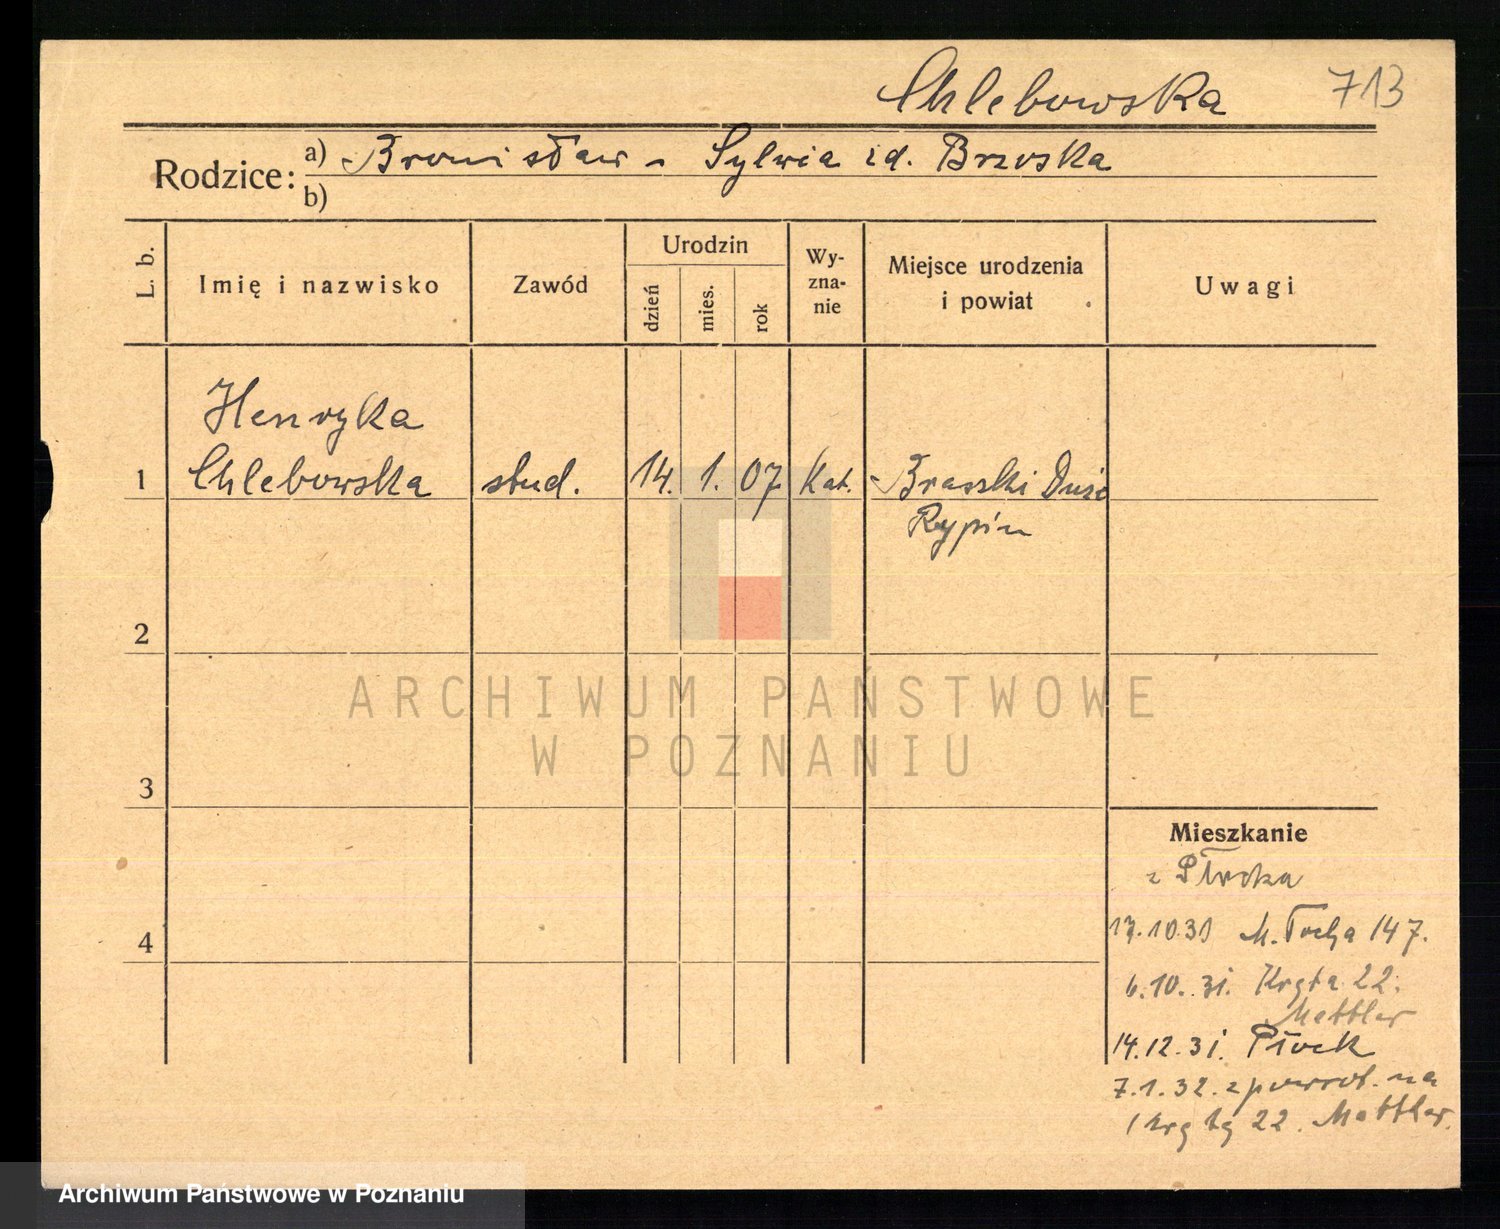 Chlebowska 713
Rodzice: a) Bronisław - Sylwia zd. Brzoska
b)
L. b. Imię i nazwisko Zawód Urodzin dzień mies. rok Wy-zna-nie Miejsce urodzenia i powiat Uwagi
Henryka
1 Chlebowska stud. 14. 1. 07 Kat. Duże
Rypin
2
ARCHIWUM PAŃSTWOWE
W POZNANIU
3
Mieszkanie
z Płocka
4 10.31 M. 147.
6.10.31. 22.
Mettler
14.12.31. Płock
7.1.32. z powrot. na
22. Mettler.
Archiwum Państwowe w Poznaniu